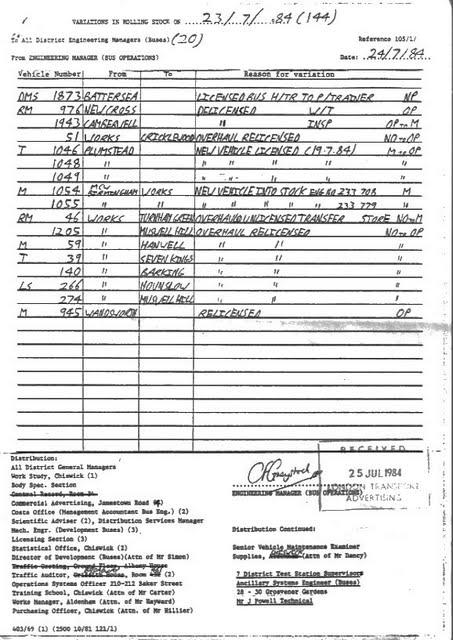 VARIATIONS IN ROLLING STOCK ON 23/7/84 (144)
To All District Engineering Managers (Buses) (20) Reference 105/1/
From ENGINEERING MANAGER (BUS OPERATIONS) Date: 24/7/84
Vehicle Number From To Reason for variation
DMS 1873 BATTERSEA LICENSED BUS H/TR TO P/TRAINER NP
RM 976 NEW CROSS DELICENSED W/T OP
1943 CAMBERWELL " INSP OP to M
51 WORKS CRICKLEWOOD OVERHAUL RELICENSED NO to OP
T 1046 PLUMSTEAD NEW VEHICLE LICENSED (19.7.84) M to OP
1048 " " " " " "
1049 " " " " "
M 1054 MCW BIRMINGHAM WORKS NEW VEHICLE INTO STOCK ENG NO 233 708 M
1055 " " " " " " " 233 779 "
RM 46 WORKS TURNHAM GREEN OVERHAUL UNLICENSED TRANSFER STORE NO to M
1205 " MUSWELL HILL OVERHAUL RELICENSED NO to OP
M 59 " HANWELL " " "
T 39 " SEVEN KINGS " " "
140 " BARKING " " "
LS 266 " HOUNSLOW " " "
274 " MUSWELL HILL " " "
M 945 WANDSWORTH RELICENSED OP
Distribution:
All District General Managers
Work Study, Chiswick (1)
Body Spec. Section
Central Record, Room 34
Commercial Advertising, Jamestown Road
Costs Office (Management Accountant Bus Eng.) (2)
Scientific Adviser (2), Distribution Services Manager
Mech. Engr. (Development Buses) (3)
Licensing Section (3)
Statistical Office, Chiswick (2)
Director of Development (Buses)(Attn of Mr Simon)
Traffic Costing, Ground Floor, Albany House
Traffic Auditor, Griffith House, Room (2)
Operations Systems Officer 210-212 Baker Street
Training School, Chiswick (Attn of Mr Carter)
Works Manager, Aldenham (Attn. of Mr Hayward)
Purchasing Officer, Chiswick (Attn. of Mr Hillier)
403/69 (1) (2500 10/81 121/1)
ENGINEERING MANAGER (BUS OPERATIONS)
RECEIVED
25 JUL 1984
LONDON TRANSPORT
ADVERTISING
Distribution Continued:
Senior Vehicle Maintenance Examiner
Supplies, (Attn of Mr Dancy)
7 District Test Station Supervisors
Ancillary Systems Engineer (Buses)
28 - 30 Grosvenor Gardens
Mr J Powell Technical